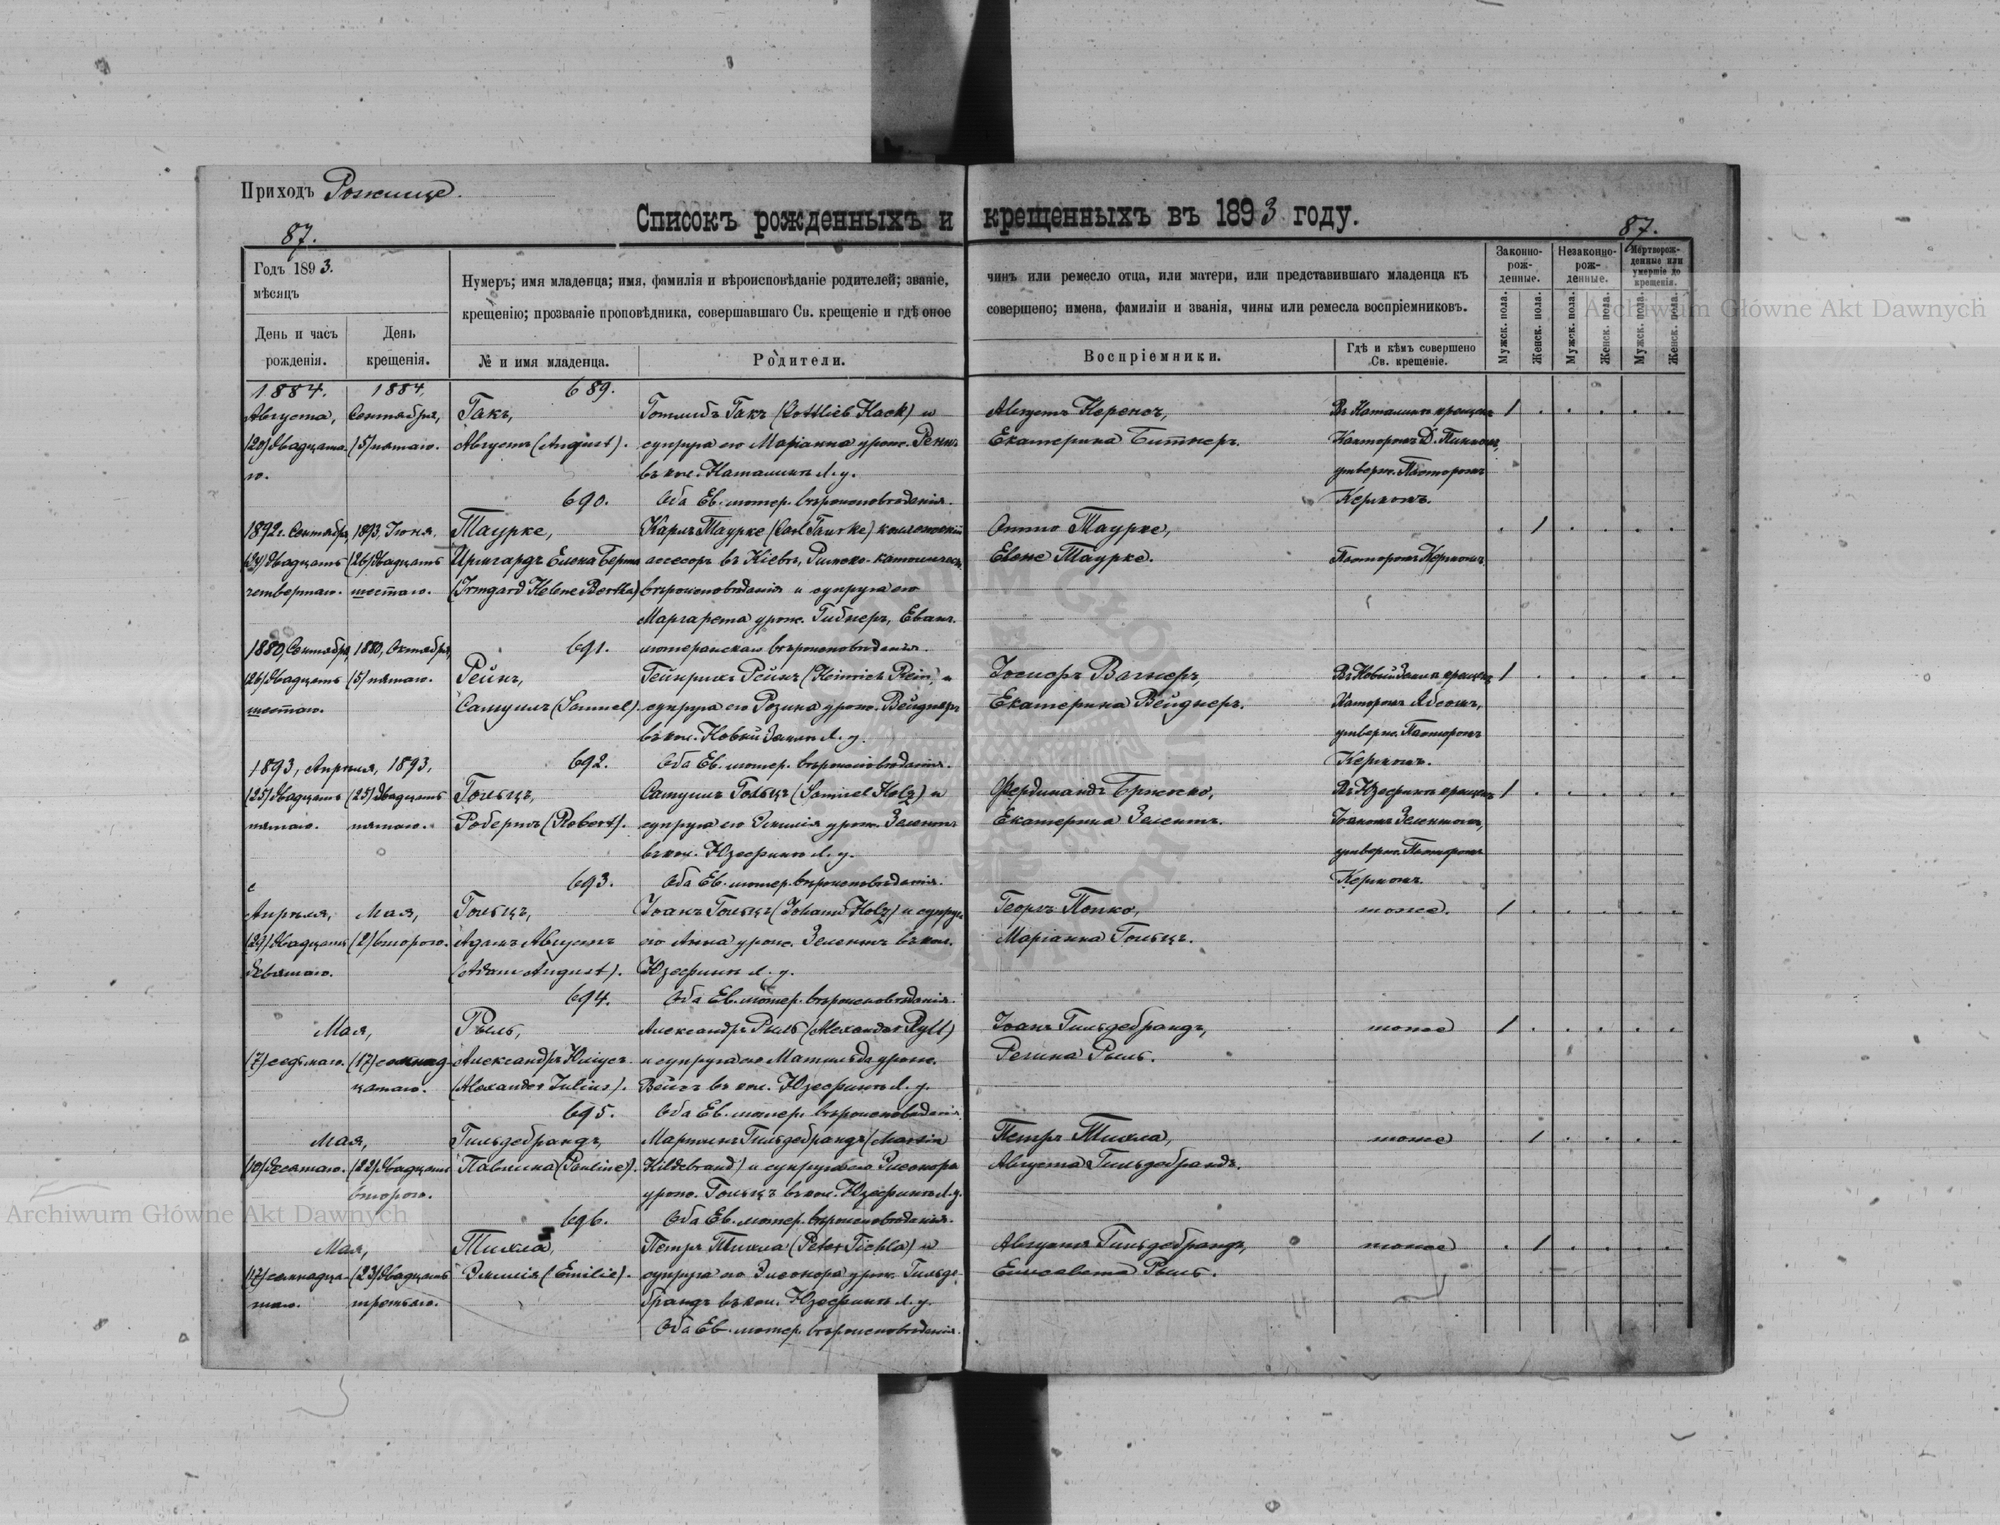 Приходъ Рожище.
Списокъ рожденныхъ и крещенныхъ въ 1893 году.
87.
87.
Годъ 1893.
мѣсяцъ
День и часъ рожденія.
День крещенія.
Нумеръ; имя младенца; имя, фамилія и вѣроисповѣданіе родителей; званіе, чинъ или ремесло отца, или матери, или представившаго младенца къ
крещенію; прозваніе проповѣдника, совершавшаго Св. крещеніе и гдѣ оное совершено; имена, фамиліи и званія, чины или ремесла воспріемниковъ.
№ и имя младенца.
Родители.
Воспріемники.
Гдѣ и кѣмъ совершено Св. крещеніе.
Законно-рож-денные.
Незаконно-рож-денные.
Мертворож-денные или умершіе до крещенія.
Мужск. пола.
Женск. пола.
Мужск. пола.
Женск. пола.
Мужск. пола.
Женск. пола.
1884. 1884. 689.
Августа, Сентября, Гакъ, Готлибъ Гакъ (Gottlieb Hack) и Августъ 1
(20) двадцата- (5) пятаго. Августъ (August). супруга его Маріанна урож. Екатерина Битнеръ.
го. въ кол. Л. у. утверж. Пасторомъ
690. Оба Ев. лютер. вѣроисповѣданія. Керномъ.
1892 г. Сентября, 1893, Іюня, Таурке, Карлъ Таурке (Carl Taurke) коллежскій Отто Таурке, 1
(24) двадцать (26) двадцать Ирмгардъ Елена Берта ассесоръ въ Кіевѣ, Римско-католическ. Елене Таурке. Пасторомъ Керномъ.
четвертаго. шестаго. (Irmgard Helene Bertha) вѣроисповѣданія и супруга его
Маргарета урож. Гибнеръ, Еванг.
1880, Сентября, 1880, Октября, 691. лютеранскаго вѣроисповѣданія.
(26) двадцать (5) пятаго. Рейнъ, Гейнрихъ Рейнъ (Heinrich Rein) и Іосифъ Вагнеръ, 1
шестаго. Самуилъ (Samuel). супруга его Розина урож. Вейднеръ Екатерина Вейднеръ.
въ кол. Новый Л. у. утверж. Пасторомъ
1893, Апрѣля, 1893, 692. Оба Ев. лютер. вѣроисповѣданія. Керномъ.
(25) двадцать (25) двадцать Гольцъ, Самуилъ Гольцъ (Samuel Holz) и Фердинандъ 1
пятаго. пятаго. Робертъ (Robert). супруга его Эмилія урож. Зелентъ Екатерина Зелентъ.
въ кол. Юзефинъ Л. у. утверж. Пасторомъ
693. Оба Ев. лютер. вѣроисповѣданія. Керномъ.
Апрѣля, Мая, Гольцъ, Іоанъ Гольцъ (Johann Holz) и супруга Георгъ Попко, тоже. 1
(29) двадцать (2) второго. Адамъ Августъ его Анна урож. Зелентъ въ кол. Маріанна Гольцъ.
девятаго. (Adam August). Юзефинъ Л. у.
694. Оба Ев. лютер. вѣроисповѣданія.
Мая, Рыль, Александръ Рыль (Alexander Ryll) Іоанъ Гильдебрандъ, тоже 1
(7) седьмаго. (17) семнад- Александръ Юліусъ и супруга его Матильда урож. Регина Рыль.
цатаго. (Alexander Julius). въ кол. Юзефинъ Л. у.
695. Оба Ев. лютер. вѣроисповѣданія.
Мая, Гильдебрандъ, Мартинъ Гильдебрандъ (Martin Петръ Тихла, тоже 1
(10) десятаго. (22) двадцать Павлина (Pauline). Hildebrand) и супруга его Элеонора Августа Гильдебрандъ.
второго. урож. Гольцъ въ кол. Юзефинъ Л. у.
696. Оба Ев. лютер. вѣроисповѣданія.
Мая, Тихла, Петръ Тихла (Peter Tichla) и Августъ Гильдебрандъ, тоже 1
(17) семнадца- (23) двадцать Эмилія (Emilie). супруга его Элеонора урож. Гильде- Елисавета Рыль.
таго. третьяго. брандъ въ кол. Юзефинъ Л. у.
Оба Ев. лютер. вѣроисповѣданія.
Archiwum Główne Akt Dawnych
Archiwum Główne Akt Dawnych